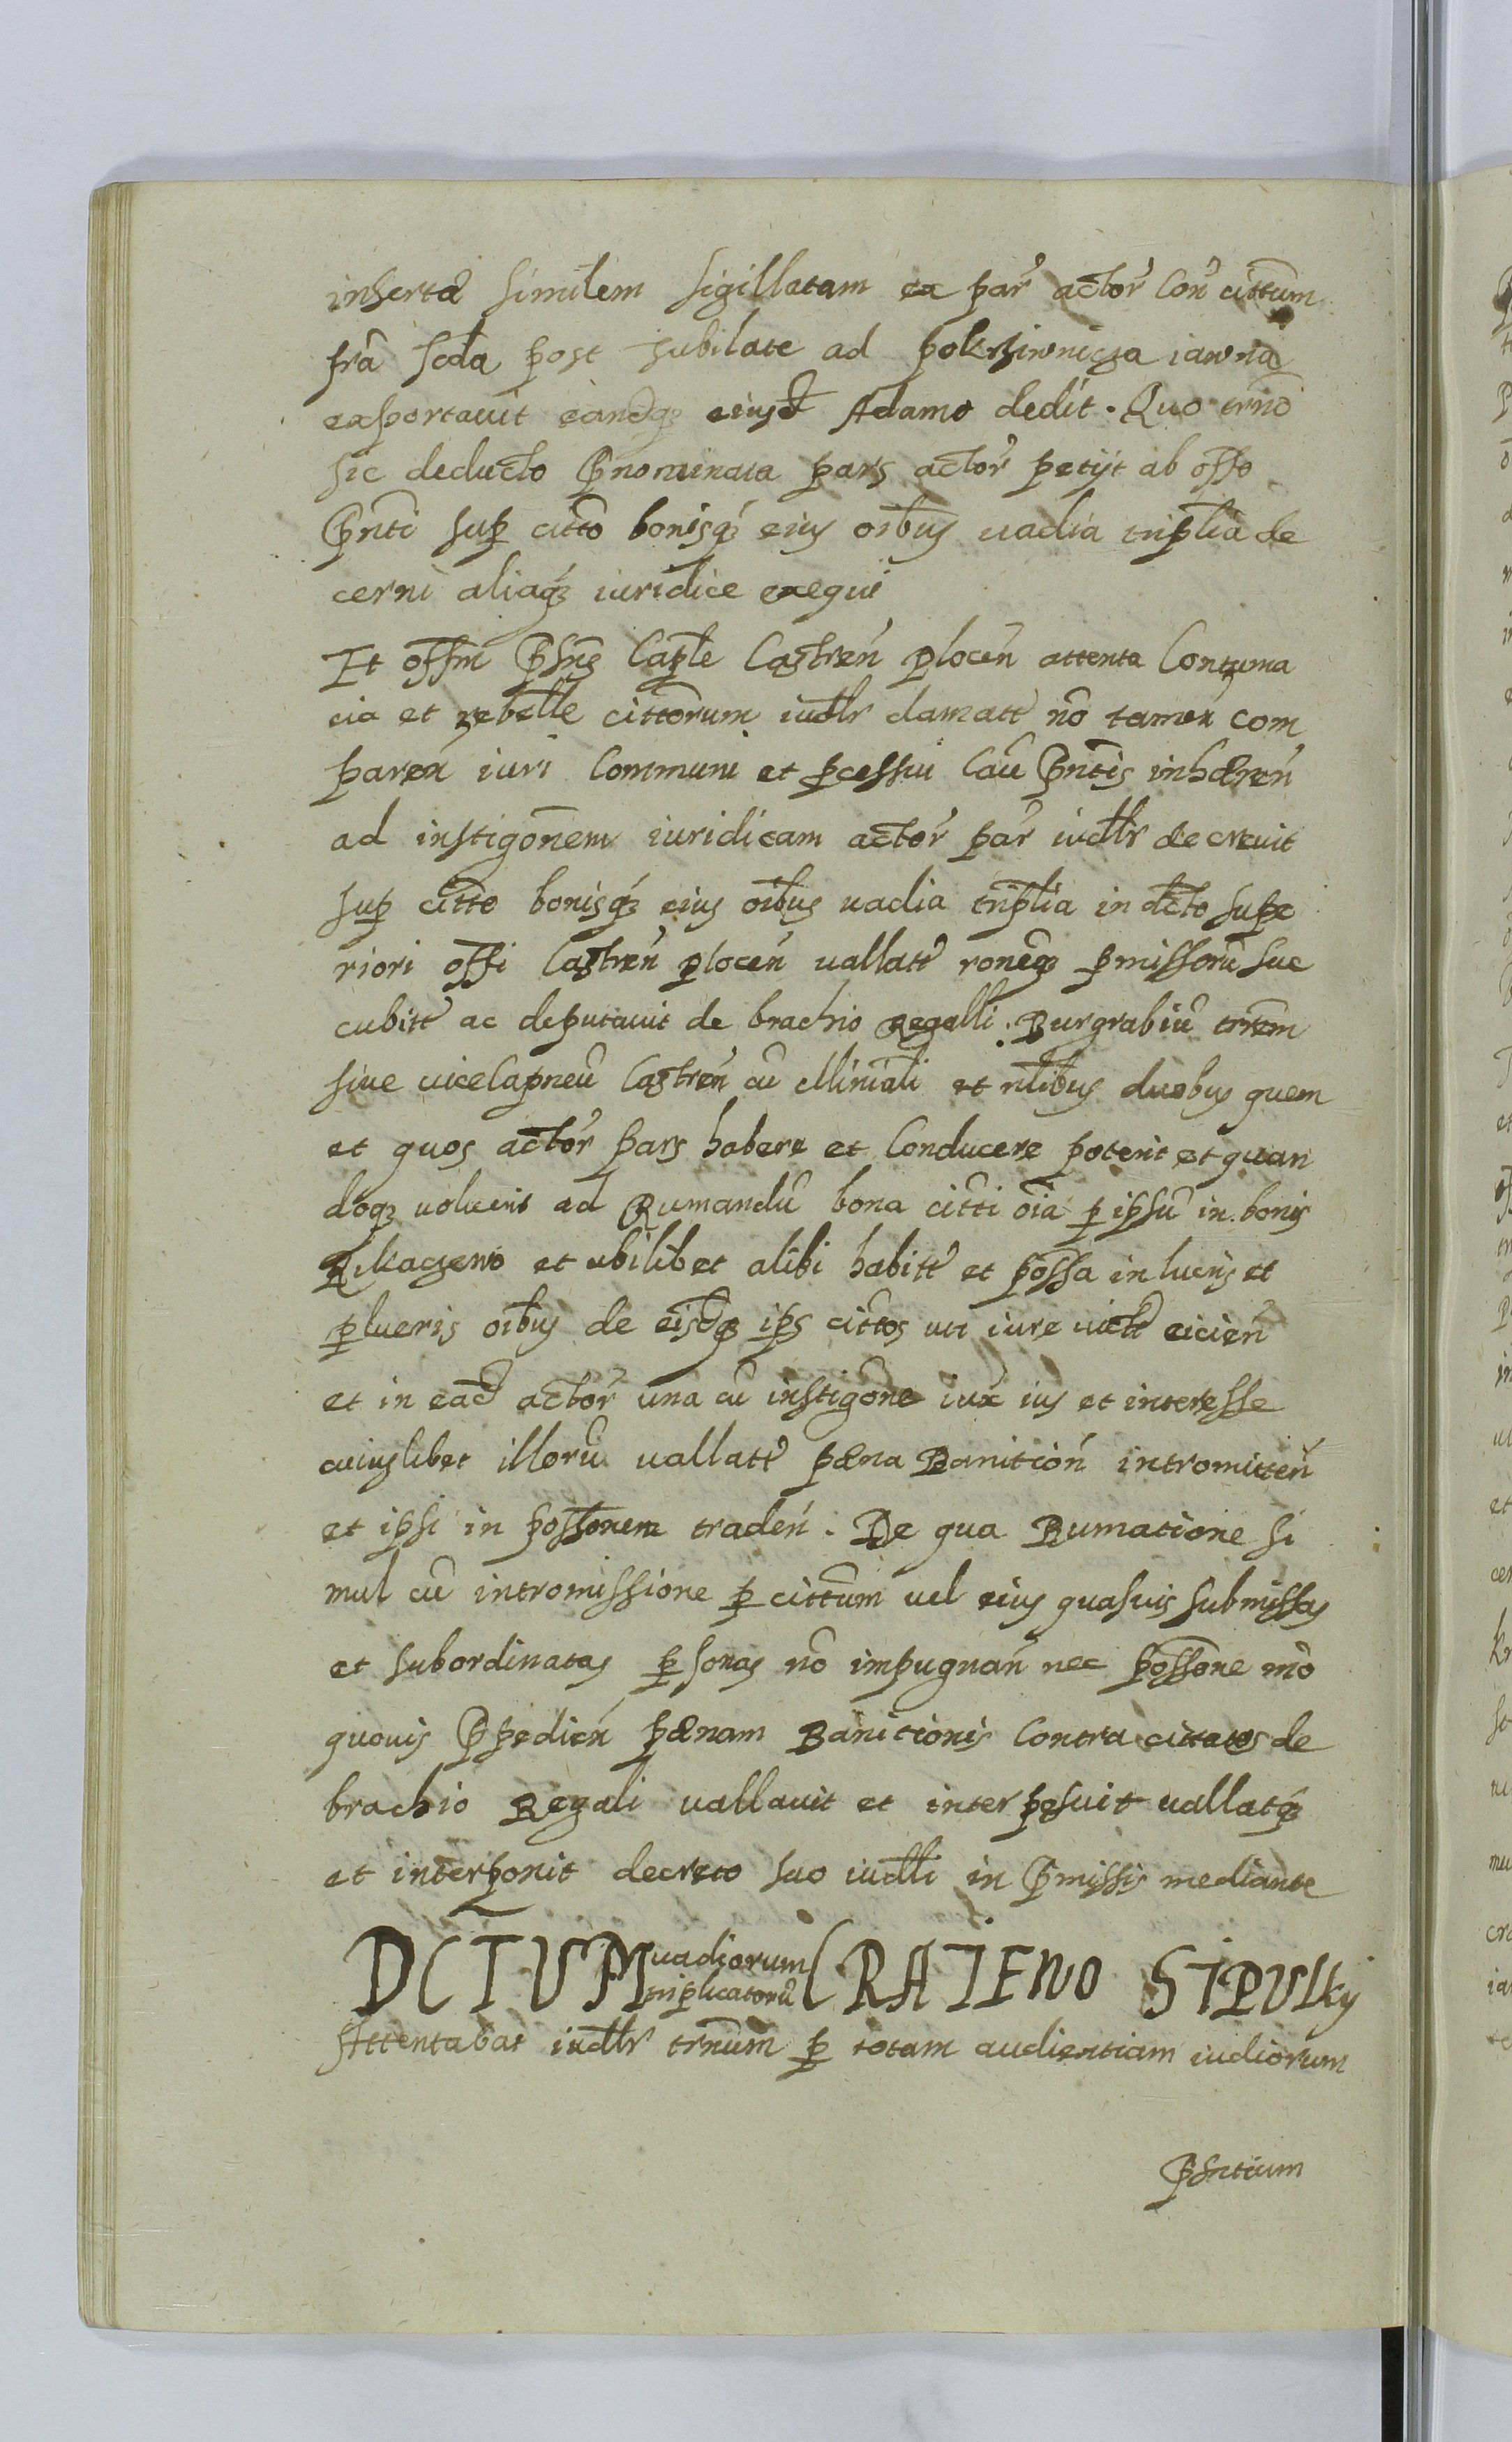 insertæ similem sigillatam ex par actor con cittum
fra scda post Iubilate ad pokrziwnicza iawna
exportauit eandqz eiusd Adamo dedit. Quo trno
sic deducto Pnominata pars actor petijt ab offo
Pnti sup citto bonisqz eius oibus uadia triplia de
cerni aliaqz iuridice exequi
Et offm Psns Caple Castren Plocen attenta Contuma
cia et rebelle cittorum iudlr clamatt no tamen com
paren iuri Communi et pcessui Cau Pntis inhæren
ad instigonem iuridicam actor par iudlr decreuit
sup citto bonisqz eius oibus uadia triplia in dcto supe
riori offi Castren Plocen uallatt roneqz pmissoru suc
cubitt ac deputauit de brachio Regalli. Burgrabiu trrem
siue uiceCapneu Castren cu Miniali et nlibus duobus quem
et quos actor pars habere et Conducere poterit et quan
doqz uoluerit ad Rumandu bona citti oia p ipsu in bonis
et ubilibet alibi habitt et possa in lucris et
plueris oibus de eisdqz ips cittos uti iure uictt eicien
et in eacd actor una cu instigone iux ius et interesse
cuiuslibet illoru uallatt pæna Banition intromitten
et ipsi in possonem traden. De qua Rumatione si
mul cu intromissione p cittum uel eius quasuis submissas
et subordinatas p sonas no impugnan nec possone mo
quouis Ppedien pænam Banitionis Contra cittatos de
brachio Regali uallauit et interposuit uallatqz
et interponit decreto suo iudlli in Pmissis mediante
DCTUM uadiorum triplicatoru CRAIEWO SIPULky
Attentabat iudlr trnum p totam audientiam iudiorum
Psntium